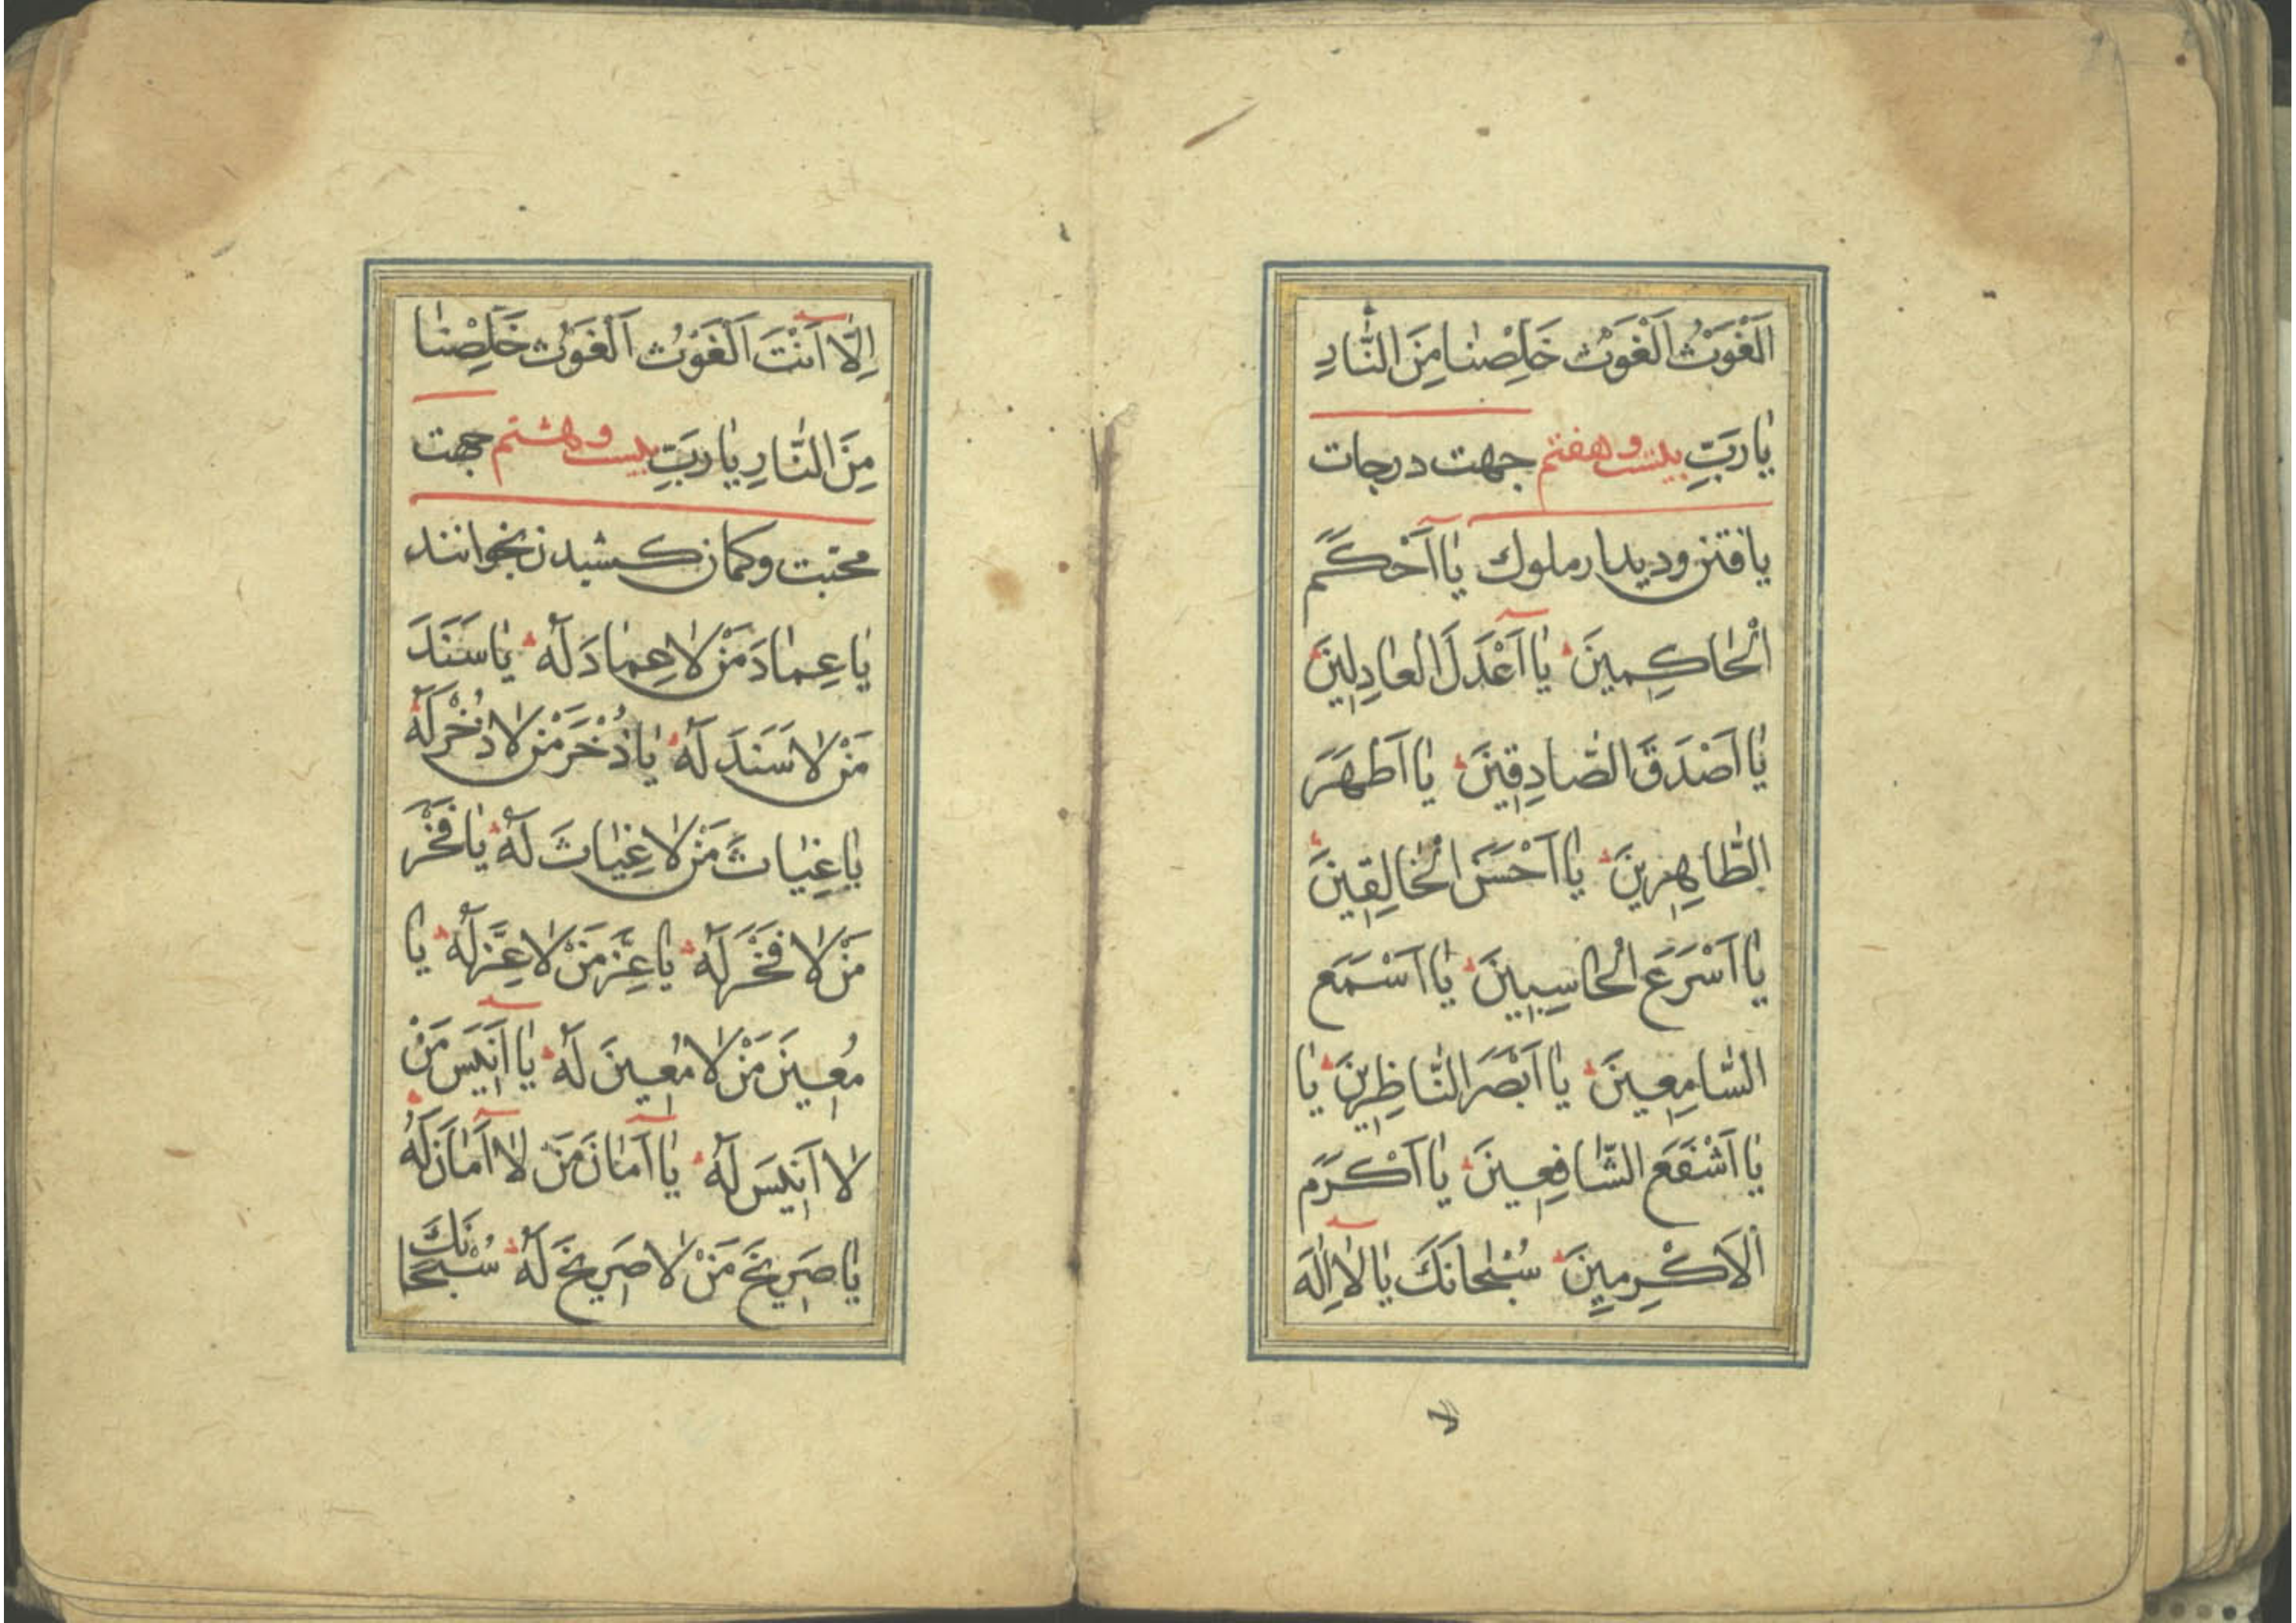 اَلْغَوْثُ اَلْغَوْثُ خَلِّصْنٰا مِنَ النّٰارِ
يٰا رَبِّ بیست و هفتم جهت درجات
یافتن و دیدار ملوك يٰا اَحْكَمَ
الْحٰاكِمينَ يٰا اَعْدَلَ الْعٰادِلينَ
يٰا اَصْدَقَ الصّٰادِقينَ يٰا اَطْهَرَ
الطّٰاهِرينَ يٰا اَحْسَنَ الْخٰالِقينَ
يٰا اَسْرَعَ الْحٰاسِبينَ يٰا اَسْمَعَ
السّٰامِعينَ يٰا اَبْصَرَ النّٰاظِرينَ يٰا
يٰا اَشْفَعَ الشّٰافِعينَ يٰا اَكْرَمَ
الْاَكْرَمينَ سُبْحٰانَكَ يٰا لٰا اِلٰهَ
اِلّٰا اَنْتَ اَلْغَوْثُ اَلْغَوْثُ خَلِّصْنٰا
مِنَ النّٰارِ يٰا رَبِّ بیست و هشتم جهت
محبت و کمان کشیدن بخوانند
يٰا عِمٰادَ مَنْ لٰا عِمٰادَ لَهُ يٰا سَنَدَ
مَنْ لٰا سَنَدَ لَهُ يٰا ذُخْرَ مَنْ لٰا ذُخْرَ لَهُ
يٰا غِيٰاثَ مَنْ لٰا غِيٰاثَ لَهُ يٰا فَخْرَ
مَنْ لٰا فَخْرَ لَهُ يٰا عِزَّ مَنْ لٰا عِزَّ لَهُ يٰا
مُعينَ مَنْ لٰا مُعينَ لَهُ يٰا اَنيسَ مَنْ
لٰا اَنيسَ لَهُ يٰا اَمٰانَ مَنْ لٰا اَمٰانَ لَهُ
يٰا صَريخَ مَنْ لٰا صَريخَ لَهُ سُبْحٰانَكَ